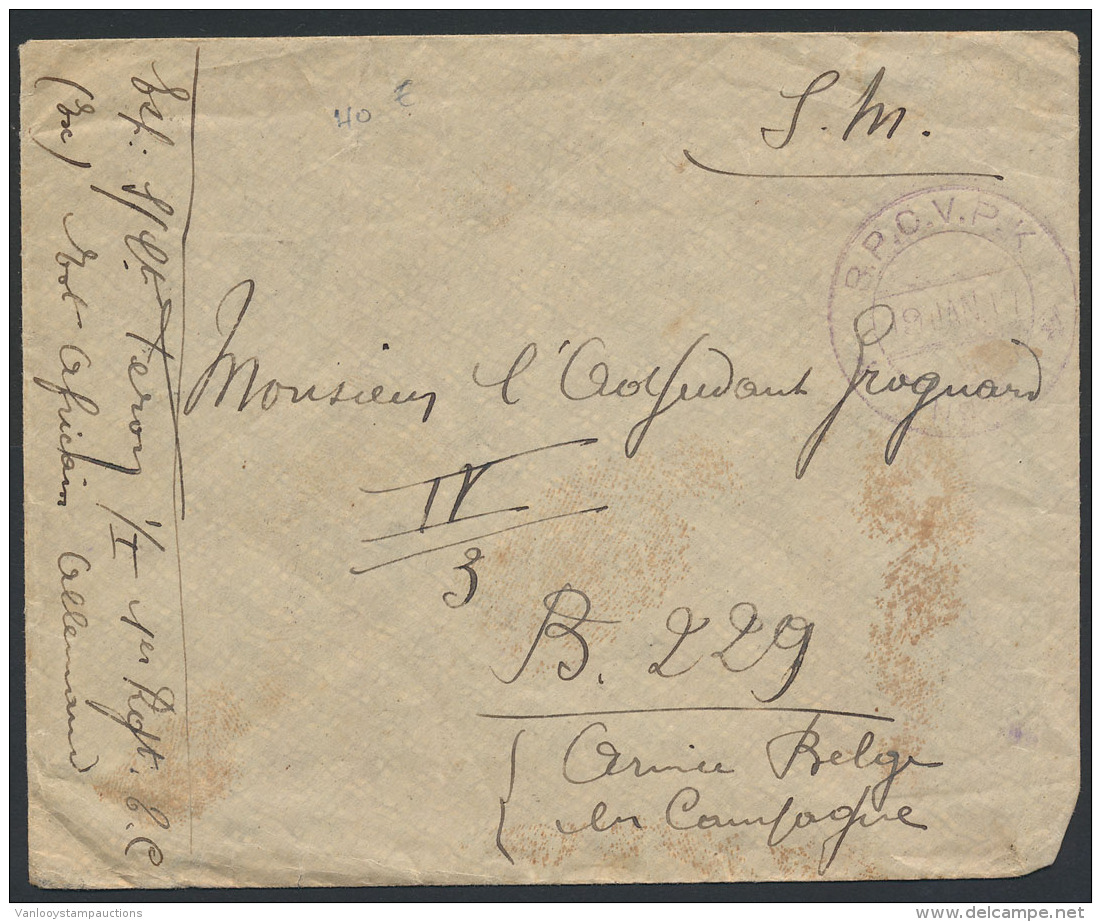 S. M.
40 €
B.P.C.V.P.K
19 JAN 17
Monsieur l'Adjudant Grognard
IV
3
B. 229
Armée Belge
en Campagne
Exp. S/Lt Feron 1/I 1er Rgt. C.C
(Ex) Est Africain Allemand
Vanlooystampauctions
delcampe.net